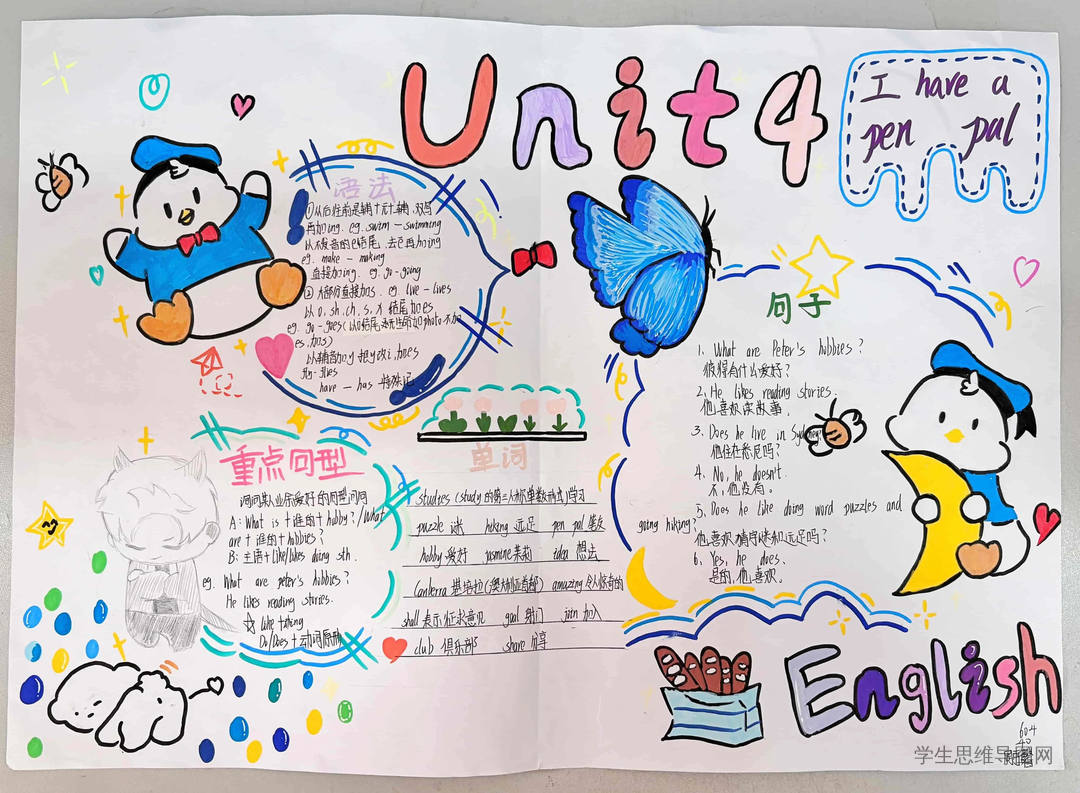 Unit 4
I have a
pen pal
语法
①从后往前是辅+元+辅,双写
再加ing. eg. swim — swimming
以不发音的e结尾,去e再加ing
eg. make — making
直接加ing. eg. go - going
②大部份直接加s. eg. live - lives
以o, sh, ch, s, x 结尾加es
eg. go - goes (以o结尾
photo 不加
es,加s)
以辅音加y 把y改i,加es
fly - flies
have — has 特殊记
句子
1. What are Peter's hibbies?
彼得有什么爱好?
2. He likes reading stories.
他喜欢读故事。
3. Does he live in Sydney?
他住在悉尼吗?
4. No, he doesn't.
不,他没有。
5. Does he like doing word puzzles and
going hiking?
他喜欢猜字谜和远足吗?
6. Yes, he does.
是的,他喜欢。
重点句型
询问某人业余爱好的句型问句
A: What is + 谁的 + hobby? / What
are + 谁的 + hobbies?
B: 主语 + like/likes doing sth.
eg. What are peter's hibbies?
He likes reading stories.
☆ like + ing
Do/Does + 动词原形
单词
studies (study 的第三人称单数形式)学习
puzzle 谜 hiking 远足 pen pal 笔友
hobby 爱好 jasmine 茉莉 idea 想法
Canberra 堪培拉(澳大利亚首都) amazing 令人惊奇的
shall 表示征求意见 goal 射门 join 加入
club 俱乐部 share 分享
English
604
40
学生思维导图网